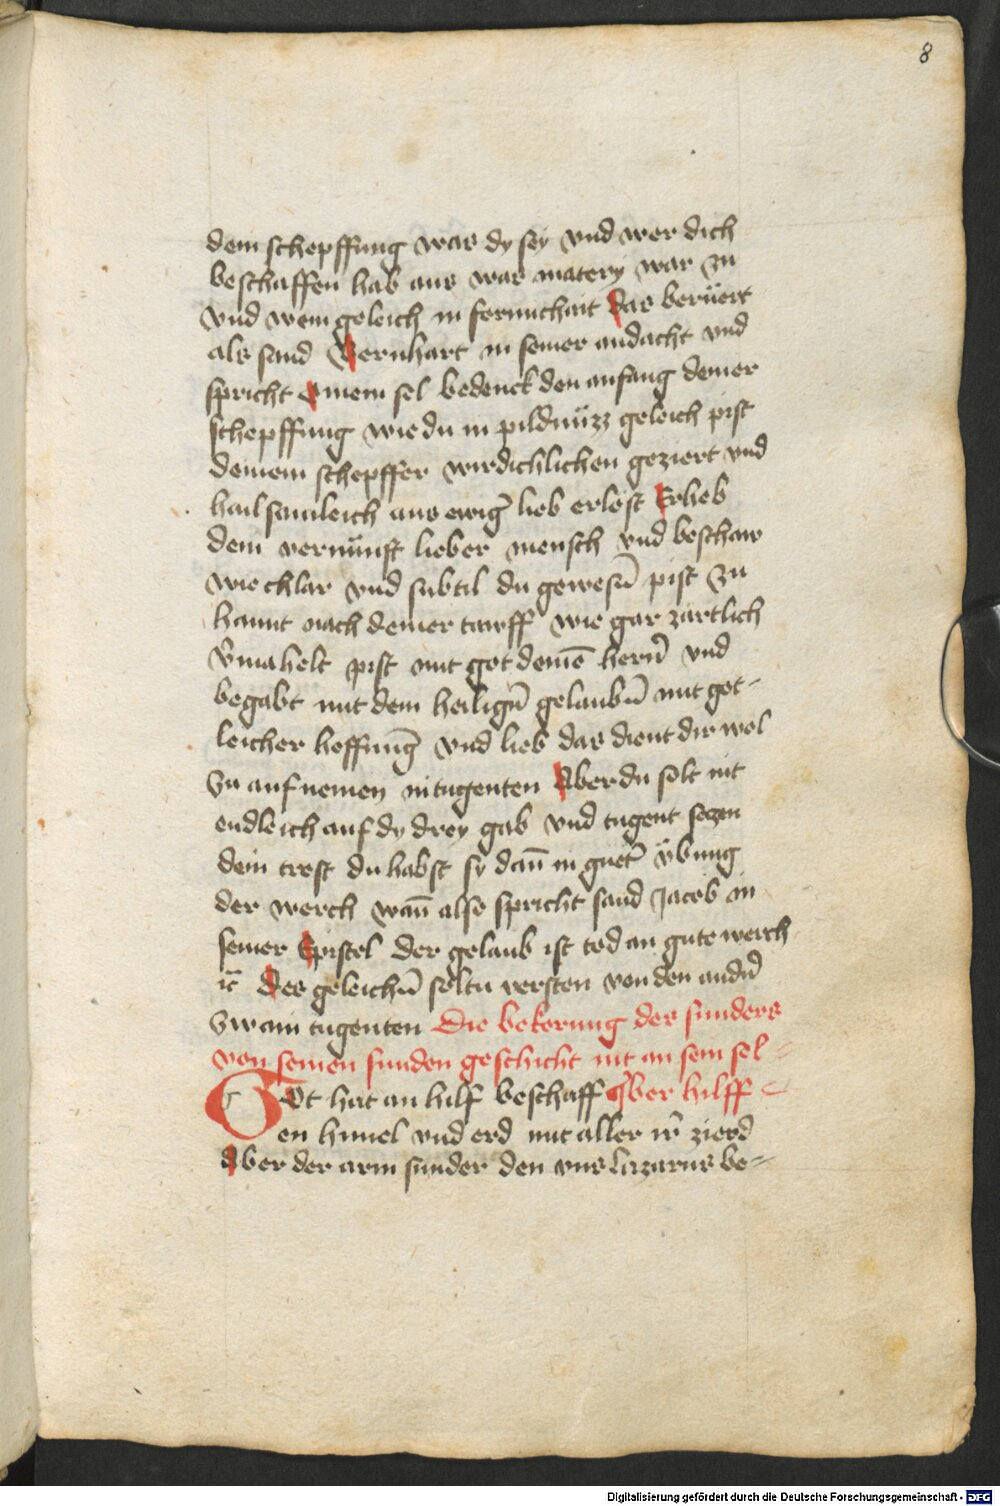 8
dein schepffung was dy sey vnd wer dich
beschaffen hab aus was matery war zu
vnd wem geleich in formichait Das beruͤert
als sand Bernhart in seiner andacht vnd
spricht O mein sel bedenck den anfang deiner
schepffung wie du in pildnuͤzz geleich pist
deinem schepffer wirdichlichen geziert vnd
hailsamleich aus ewig̉ lieb erlöst Erheb
dein vernünft lieber mensch vnd beschaw
wie chlar vnd subtil du gewesn̄ pist zu
hannt nach deiner tawff wie gar zärtlich
v̉mahelt pist mit got deinē hern̄ vnd
begabt mit dem heilign̄ gelaubn̄ mit got-
leicher hoffunḡ vnd lieb das dient dir wol
zu aufnemen in tugenten Aber du solt nit
endleich auf dy drey gab vnd tugent seczen
dein trost du habst sy dan̄ in guet̉ vͤbung
der werch wan̄ also spricht sand Jacob in
seiner Epistel der gelaub ist tod an gute werch
ꝛc̄ Des geleichn̄ soltu versten von den andn̄
zwain tugenten Die bekerung des sunders
von seinen sunden geschicht nit an sein sel-
Got hat an hilf beschaff ber hilff
en himel vnd erd mit aller ir̉ zierd
Aber der arm sunder den vns lazarus be-
Digitalisierung gefördert durch die Deutsche Forschungsgemeinschaft - DFG